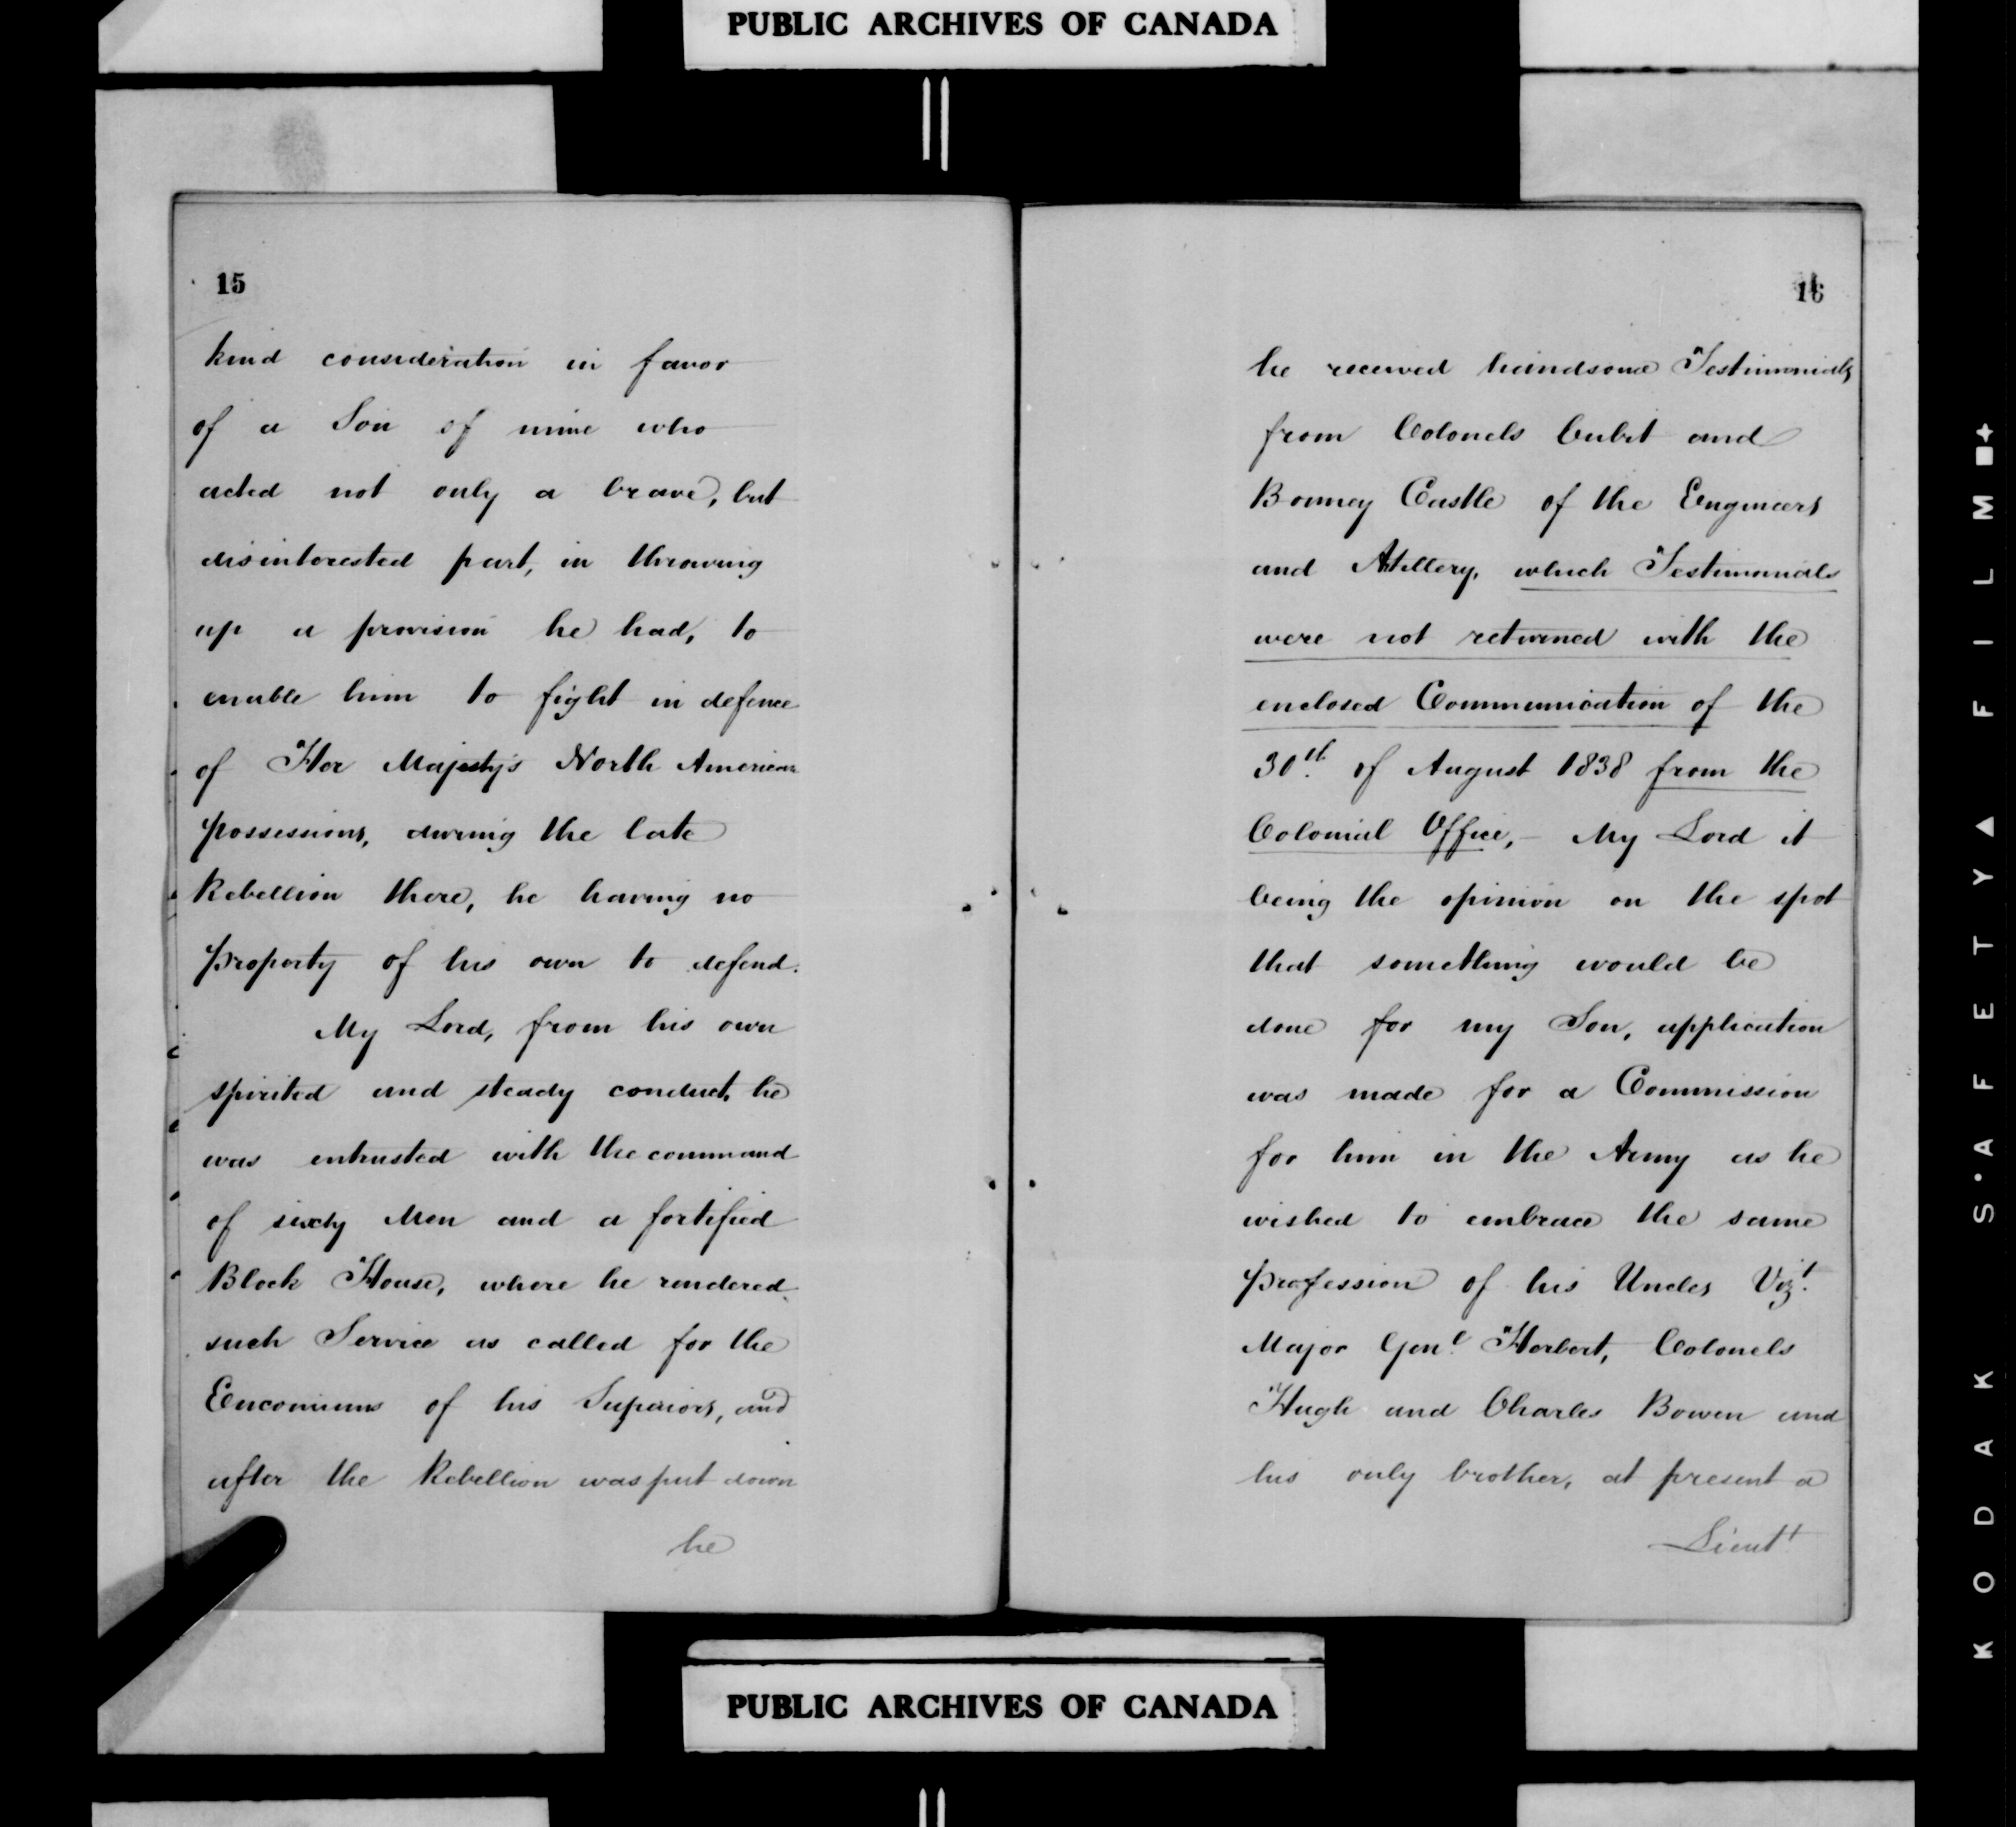 PUBLIC ARCHIVES OF CANADA
15
kind consideration in favor
of a Son of mine who
acted not only a brave, but
disinterested part, in throwing
up a provision he had, to
enable him to fight in defence
of Her Majesty's North American
possessions, during the late
Rebellion there, he having no
property of his own to defend.
My Lord, from his own
spirited and steady conduct, he
was entrusted with the command
of sixty Men and a fortified
Block House, where he rendered
such Service as called for the
Encomiums of his Superiors, and
after the Rebellion was put down
he
16
he received handsome Testimonials
from Colonels Cubit and
Bonney Castle of the Engineers
and Atillery, which Testimonials
were not returned with the
enclosed Communication of the
30th of August 1838 from the
Colonial Office,- My Lord it
being the opinion on the spot
that something would be
done for my Son, application
was made for a Commission
for him in the Army as he
wished to embrace the same
profession of his Uncles Vizt
Major Genl Herbert, Colonels
Hugh and Charles Bowen and
his only brother, at present a
Lieutt
PUBLIC ARCHIVES OF CANADA
KODAK S·AFETY▲ FILM■+